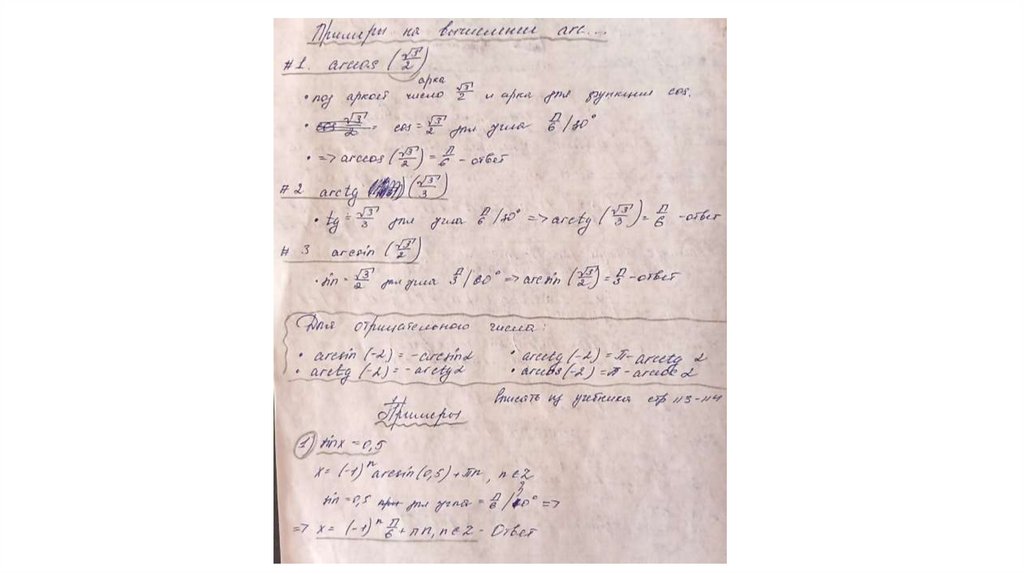 Примеры на вычисление arc...
#1. arccos (√3/2)
арка
• под аркой число √3/2 и арка для функции cos.
• cos = √3/2 для угла π/6 / 30°
• => arccos (√3/2) = π/6 - ответ
#2 arctg (√3/3)
• tg = √3/3 для угла π/6 / 30° => arctg (√3/3) = π/6 - ответ
#3 arcsin (√3/2)
• sin = √3/2 для угла π/3 / 60° => arcsin (√3/2) = π/3 - ответ
Для отрицательного числа:
• arcsin (-2) = -arcsin2
• arctg (-2) = -arctg2
• arcctg (-2) = π - arcctg 2
• arccos (-2) = π - arccos 2
Вписать из учебника стр 113-114
Примеры
1) sinx = 0,5
x = (-1)ⁿ arcsin(0,5) + πn, n∈Z
sin = 0,5 для угла = π/6 / 30° =>
=> x = (-1)ⁿ π/6 + πn, n∈Z - Ответ